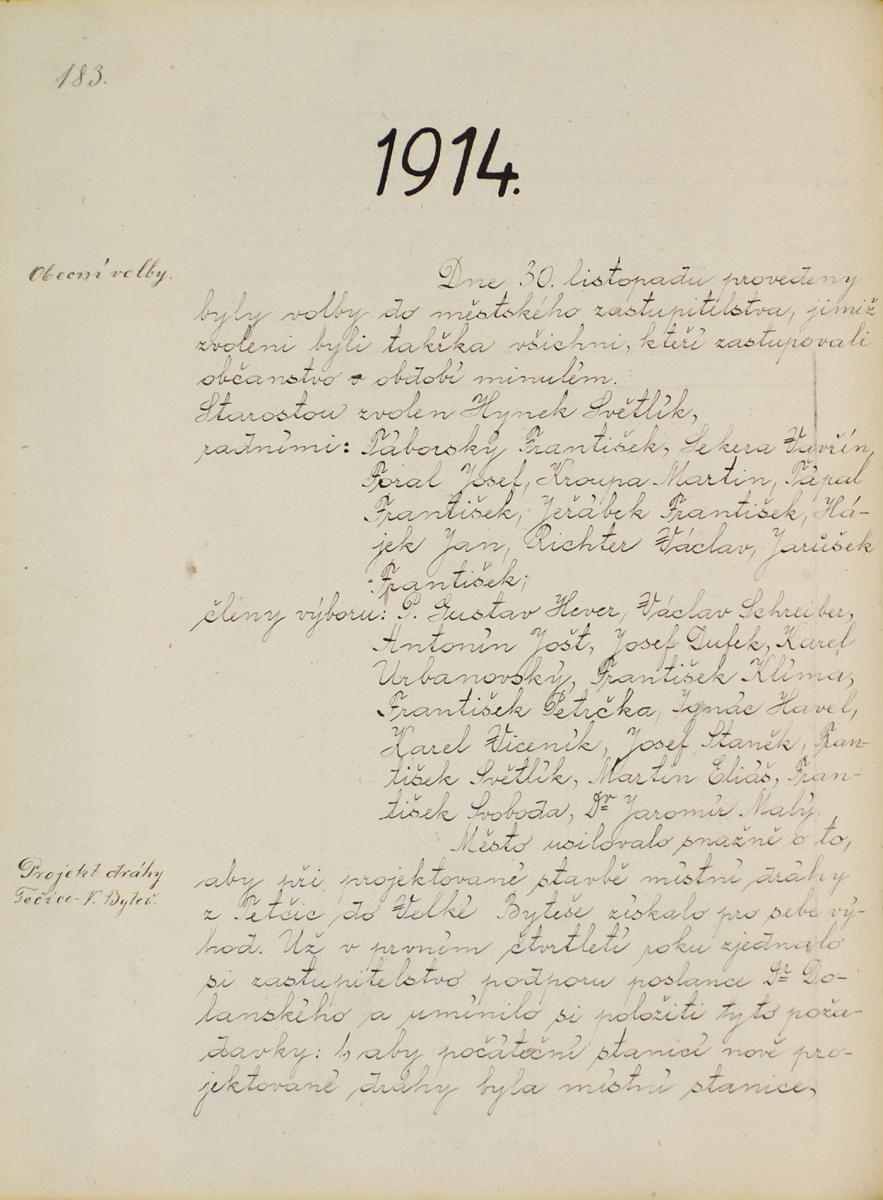 183.
1914.
Obecní volby.
Dne 30. listopadu provedeny
byly volby do městského zastupitelstva, jimiž
zvoleni byli takřka všichni, kteří zastupovali
občanstvo v období minulém.
Starostou zvolen Hynek Světlík,
radními: Táborský František, Sekera Vavřín,
Foral Josef, Kroupa Martin, Tápal
František, Jeřábek František, Há-
jek Jan, Richter Václav, Jarůšek
František;
členy výboru: P. Gustav Hever, Václav Schreiber,
Antonín Jošt, Josef Dufek, Karel
Urbanovský, František Klíma,
František Petrčka, Ignác Havel,
Karel Viceník, Josef Staněk, Fran-
tišek Světlík, Martin Eliáš, Fran-
tišek Svoboda, Dr Jaromír Malý.
Město usilovalo snažně o to,
Projekt dráhy
Tečice - V. Byteš.
aby při projektované stavbě místní dráhy
z Tetčic do Velké Byteše získalo pro sebe vý-
hod. Už v prvním čtvrtletí roku zjednalo
si zastupitelstvo podporu poslance Dr Do-
lanského a umínilo si položiti tyto poža-
davky: 1, aby počáteční stanicí nově pro-
jektované dráhy byla místní stanice,